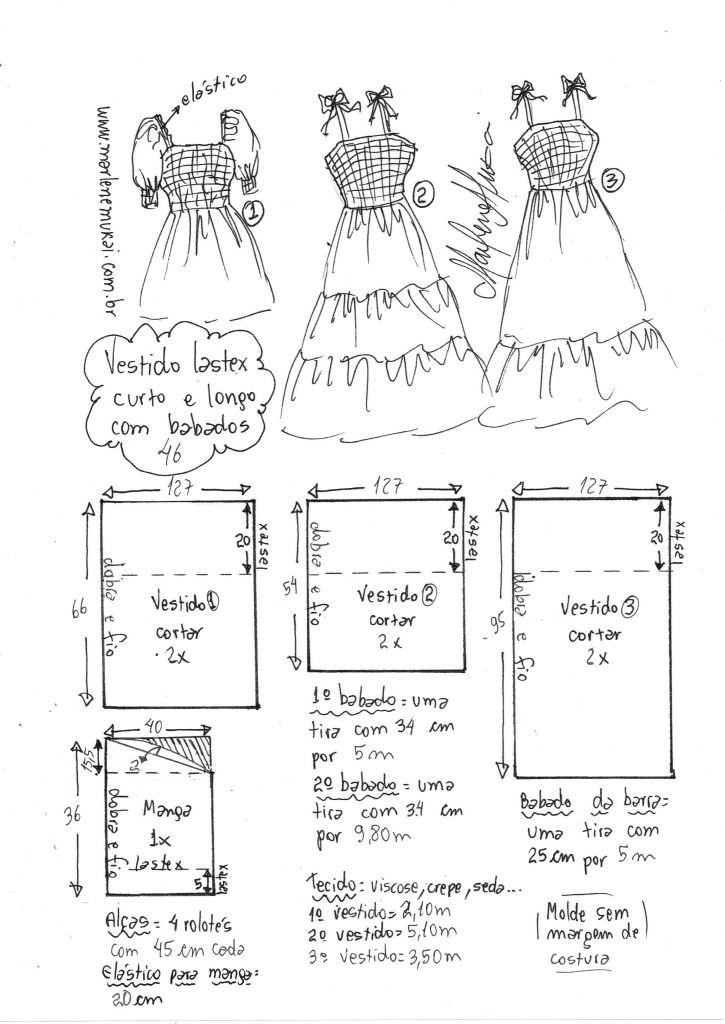 elástico
www.marlenemukai.com.br
1
2
3
Vestido lastex
curto e longo
com babados
46
127
66
dobra e fio
20
lastex
Vestido 1
cortar
2x
127
54
dobra e fio
20
lastex
Vestido 2
cortar
2x
127
95
dobra e fio
20
lastex
Vestido 3
cortar
2x
1º babado = uma
tira com 34 cm
por 5m
2º babado = uma
tira com 34 cm
por 9,80m
Babado da barra=
uma tira com
25cm por 5m
40
15,5
36
2
dobra e fio
Manga
1x
lastex
5
lastex
Alças = 4 rolotês
com 45 cm cada
Elástico para manga=
20cm
Tecido = viscose, crepe, seda...
1º vestido= 2,10m
2º vestido= 5,10m
3º vestido= 3,50m
Molde sem
margem de
costura